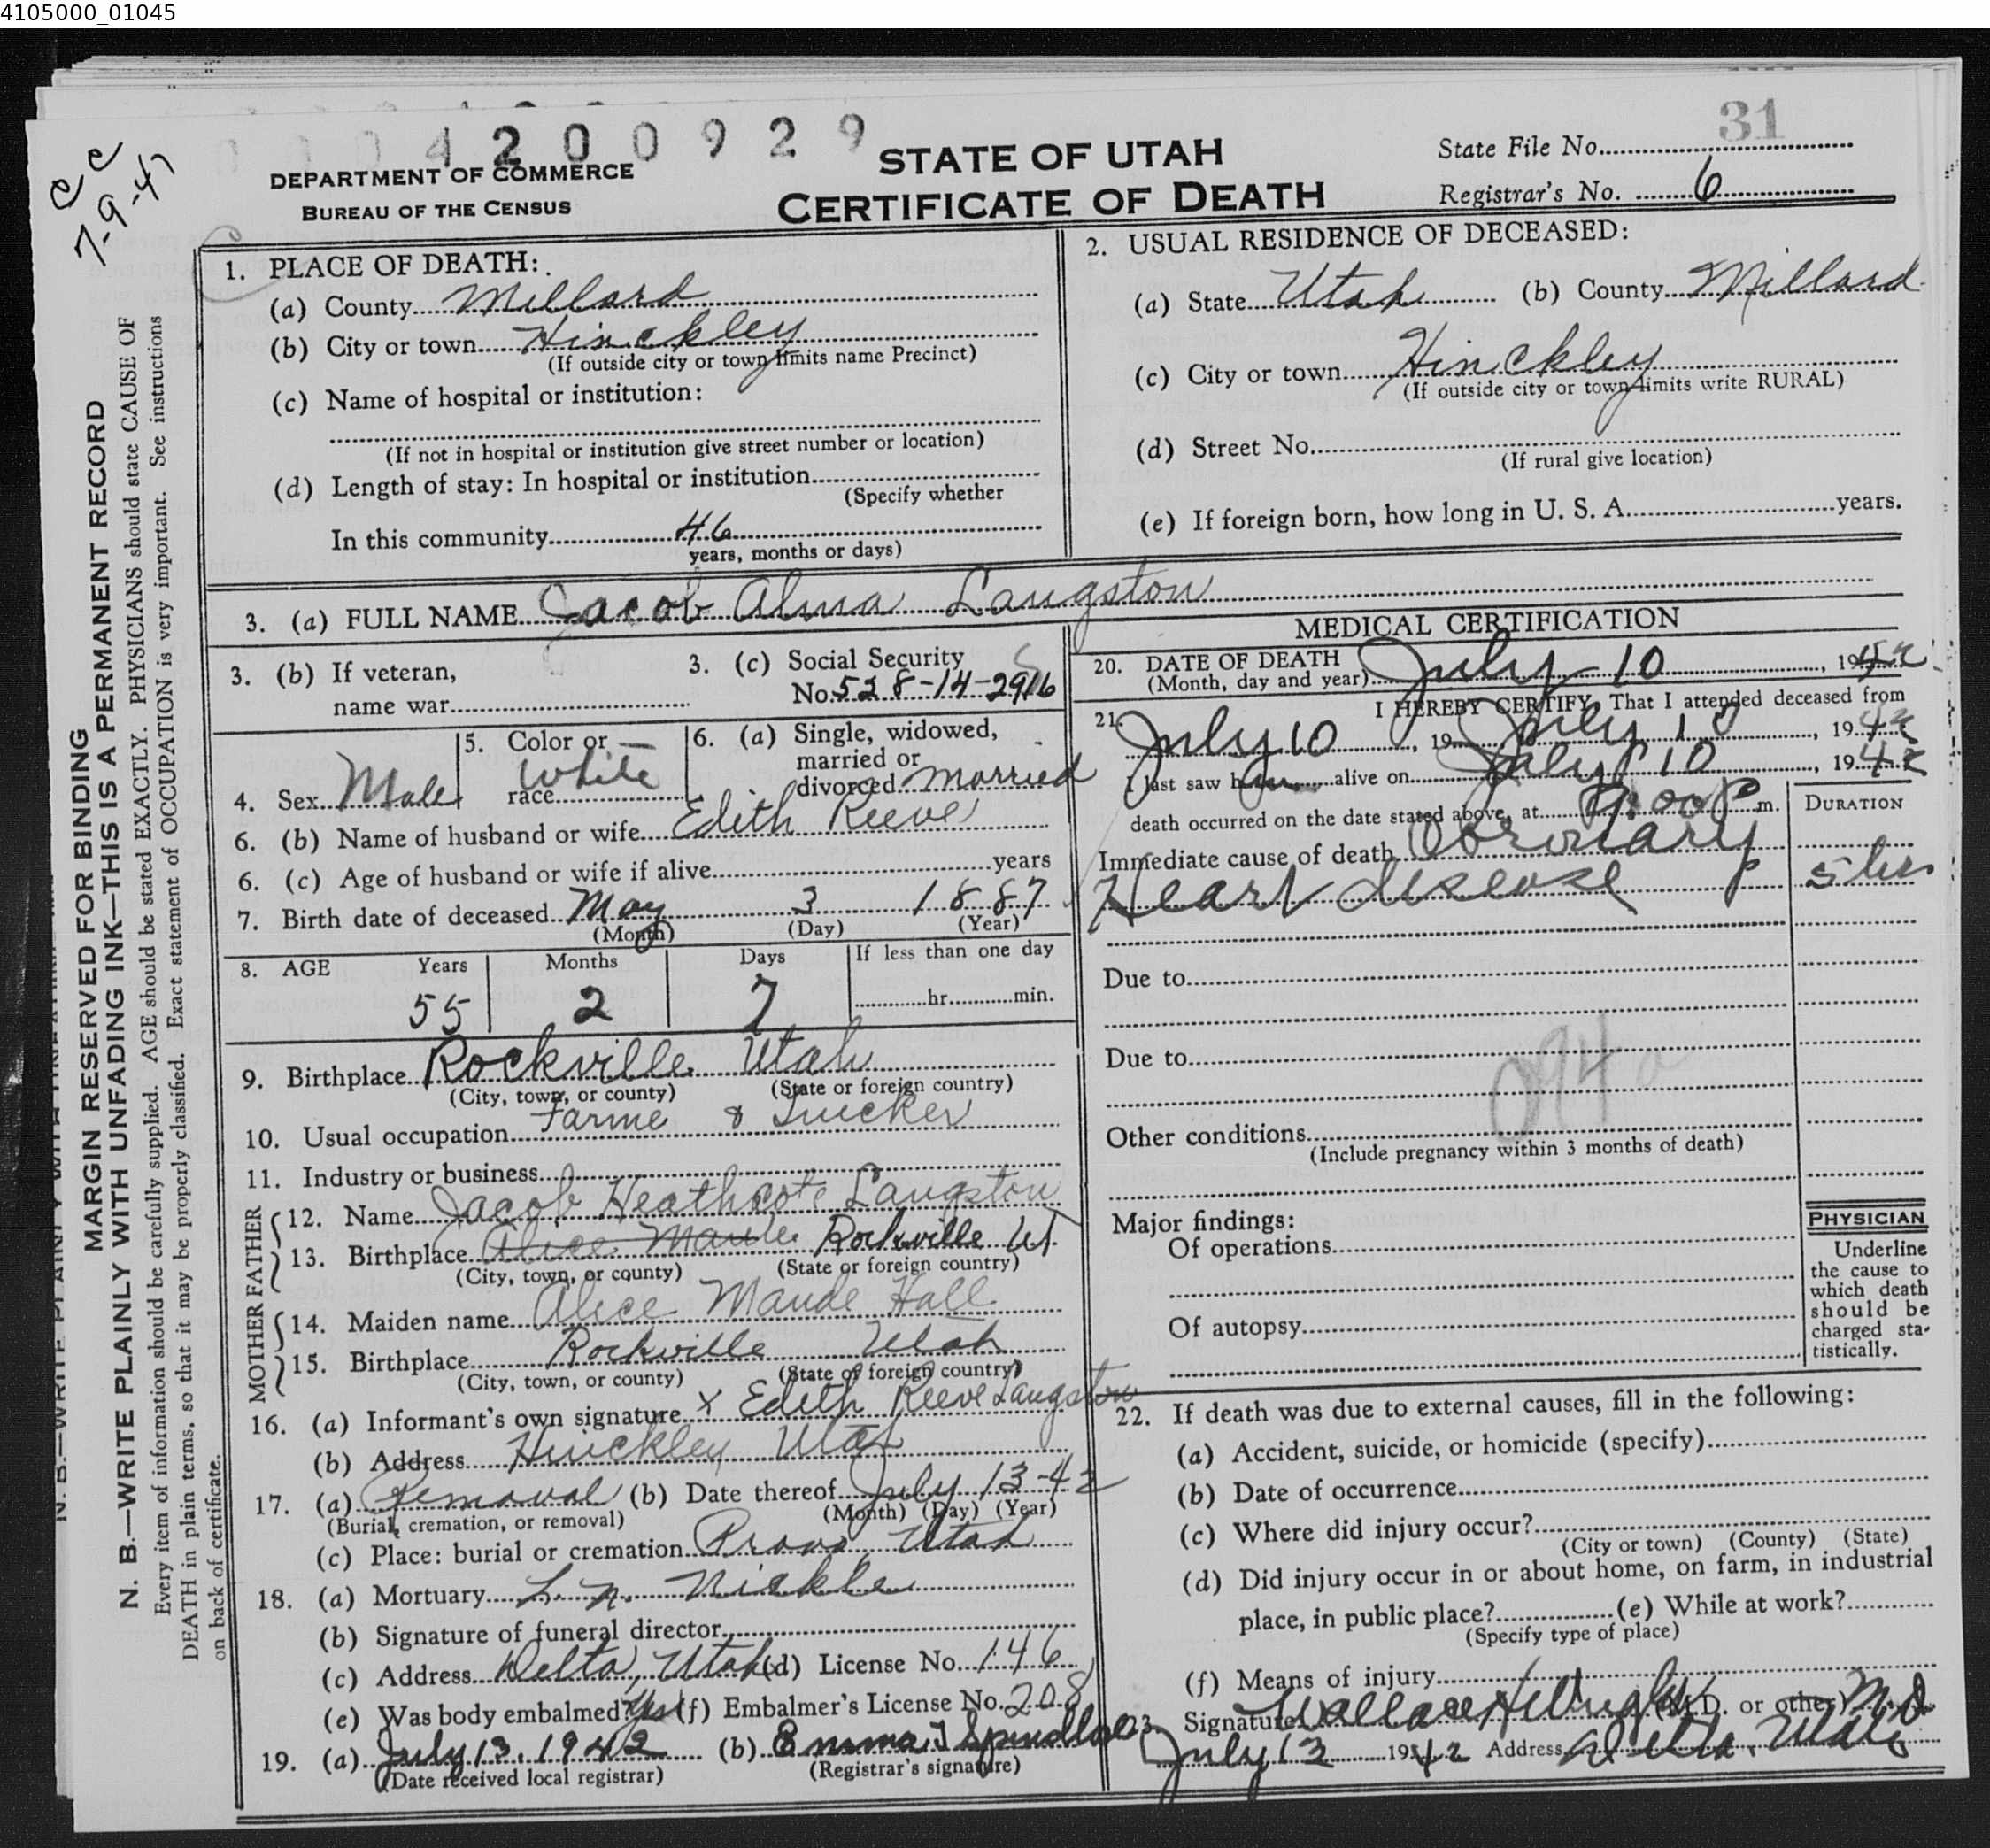 4105000_01045
c c
7-9-47
4 2 0 0 9 2 9
31
DEPARTMENT OF COMMERCE
BUREAU OF THE CENSUS
STATE OF UTAH
CERTIFICATE OF DEATH
State File No.
Registrar's No. 6
MARGIN RESERVED FOR BINDING
N. B.—WRITE PLAINLY WITH UNFADING INK—THIS IS A PERMANENT RECORD
Every item of information should be carefully supplied. AGE should be stated EXACTLY. PHYSICIANS should state CAUSE OF
DEATH in plain terms, so that it may be properly classified. Exact statement of OCCUPATION is very important. See instructions
on back of certificate.
1. PLACE OF DEATH:
(a) County Millard
(b) City or town Hinckley
(If outside city or town limits name Precinct)
(c) Name of hospital or institution:
(If not in hospital or institution give street number or location)
(d) Length of stay: In hospital or institution
(Specify whether
In this community 46
years, months or days)
2. USUAL RESIDENCE OF DECEASED:
(a) State Utah (b) County Millard
(c) City or town Hinckley
(If outside city or town limits write RURAL)
(d) Street No.
(If rural give location)
(e) If foreign born, how long in U. S. A. years.
3. (a) FULL NAME Jacob Alma Langston
3. (b) If veteran,
name war
3. (c) Social Security
No. 528-14-2916
4. Sex Male
5. Color or
race White
6. (a) Single, widowed,
married or
divorced married
6. (b) Name of husband or wife Edith Reeve
6. (c) Age of husband or wife if alive years
7. Birth date of deceased May 3 1887
(Month) (Day) (Year)
8. AGE Years Months Days If less than one day
55 2 7 hr. min.
9. Birthplace Rockville Utah
(City, town, or county) (State or foreign country)
10. Usual occupation Farme & Trucker
11. Industry or business
FATHER
12. Name Jacob Heathcote Langston
13. Birthplace Alice Maude Rockville Ut
(City, town, or county) (State or foreign country)
MOTHER
14. Maiden name Alice Maude Hall
15. Birthplace Rockville Utah
(City, town, or county) (State or foreign country)
16. (a) Informant's own signature x Edith Reeve Langston
(b) Address Hinckley Utah
17. (a) Removal (b) Date thereof July 13-42
(Burial, cremation, or removal) (Month) (Day) (Year)
(c) Place: burial or cremation Provo, Utah
18. (a) Mortuary L. N. Nickle
(b) Signature of funeral director
(c) Address Delta, Utah (d) License No. 146
(e) Was body embalmed? Yes (f) Embalmer's License No. 208
19. (a) July 13, 1942 (b) Emma T Spendlove
(Date received local registrar) (Registrar's signature)
MEDICAL CERTIFICATION
20. DATE OF DEATH
(Month, day and year) July 10, 1942
21. I HEREBY CERTIFY, That I attended deceased from
July 10, 19 July 10, 1942
I last saw him alive on July 10, 1942
death occurred on the date stated above, at P m.
DURATION
Immediate cause of death Coronary
Heart disease 5 hrs
Due to
Due to
094
Other conditions
(Include pregnancy within 3 months of death)
Major findings:
Of operations
Of autopsy
PHYSICIAN
Underline
the cause to
which death
should be
charged sta-
tistically.
22. If death was due to external causes, fill in the following:
(a) Accident, suicide, or homicide (specify)
(b) Date of occurrence
(c) Where did injury occur?
(City or town) (County) (State)
(d) Did injury occur in or about home, on farm, in industrial
place, in public place? (e) While at work?
(Specify type of place)
(f) Means of injury
23. Signature Wallace (M.D. or other) M.D
July 13 1942 Address Delta, Utah